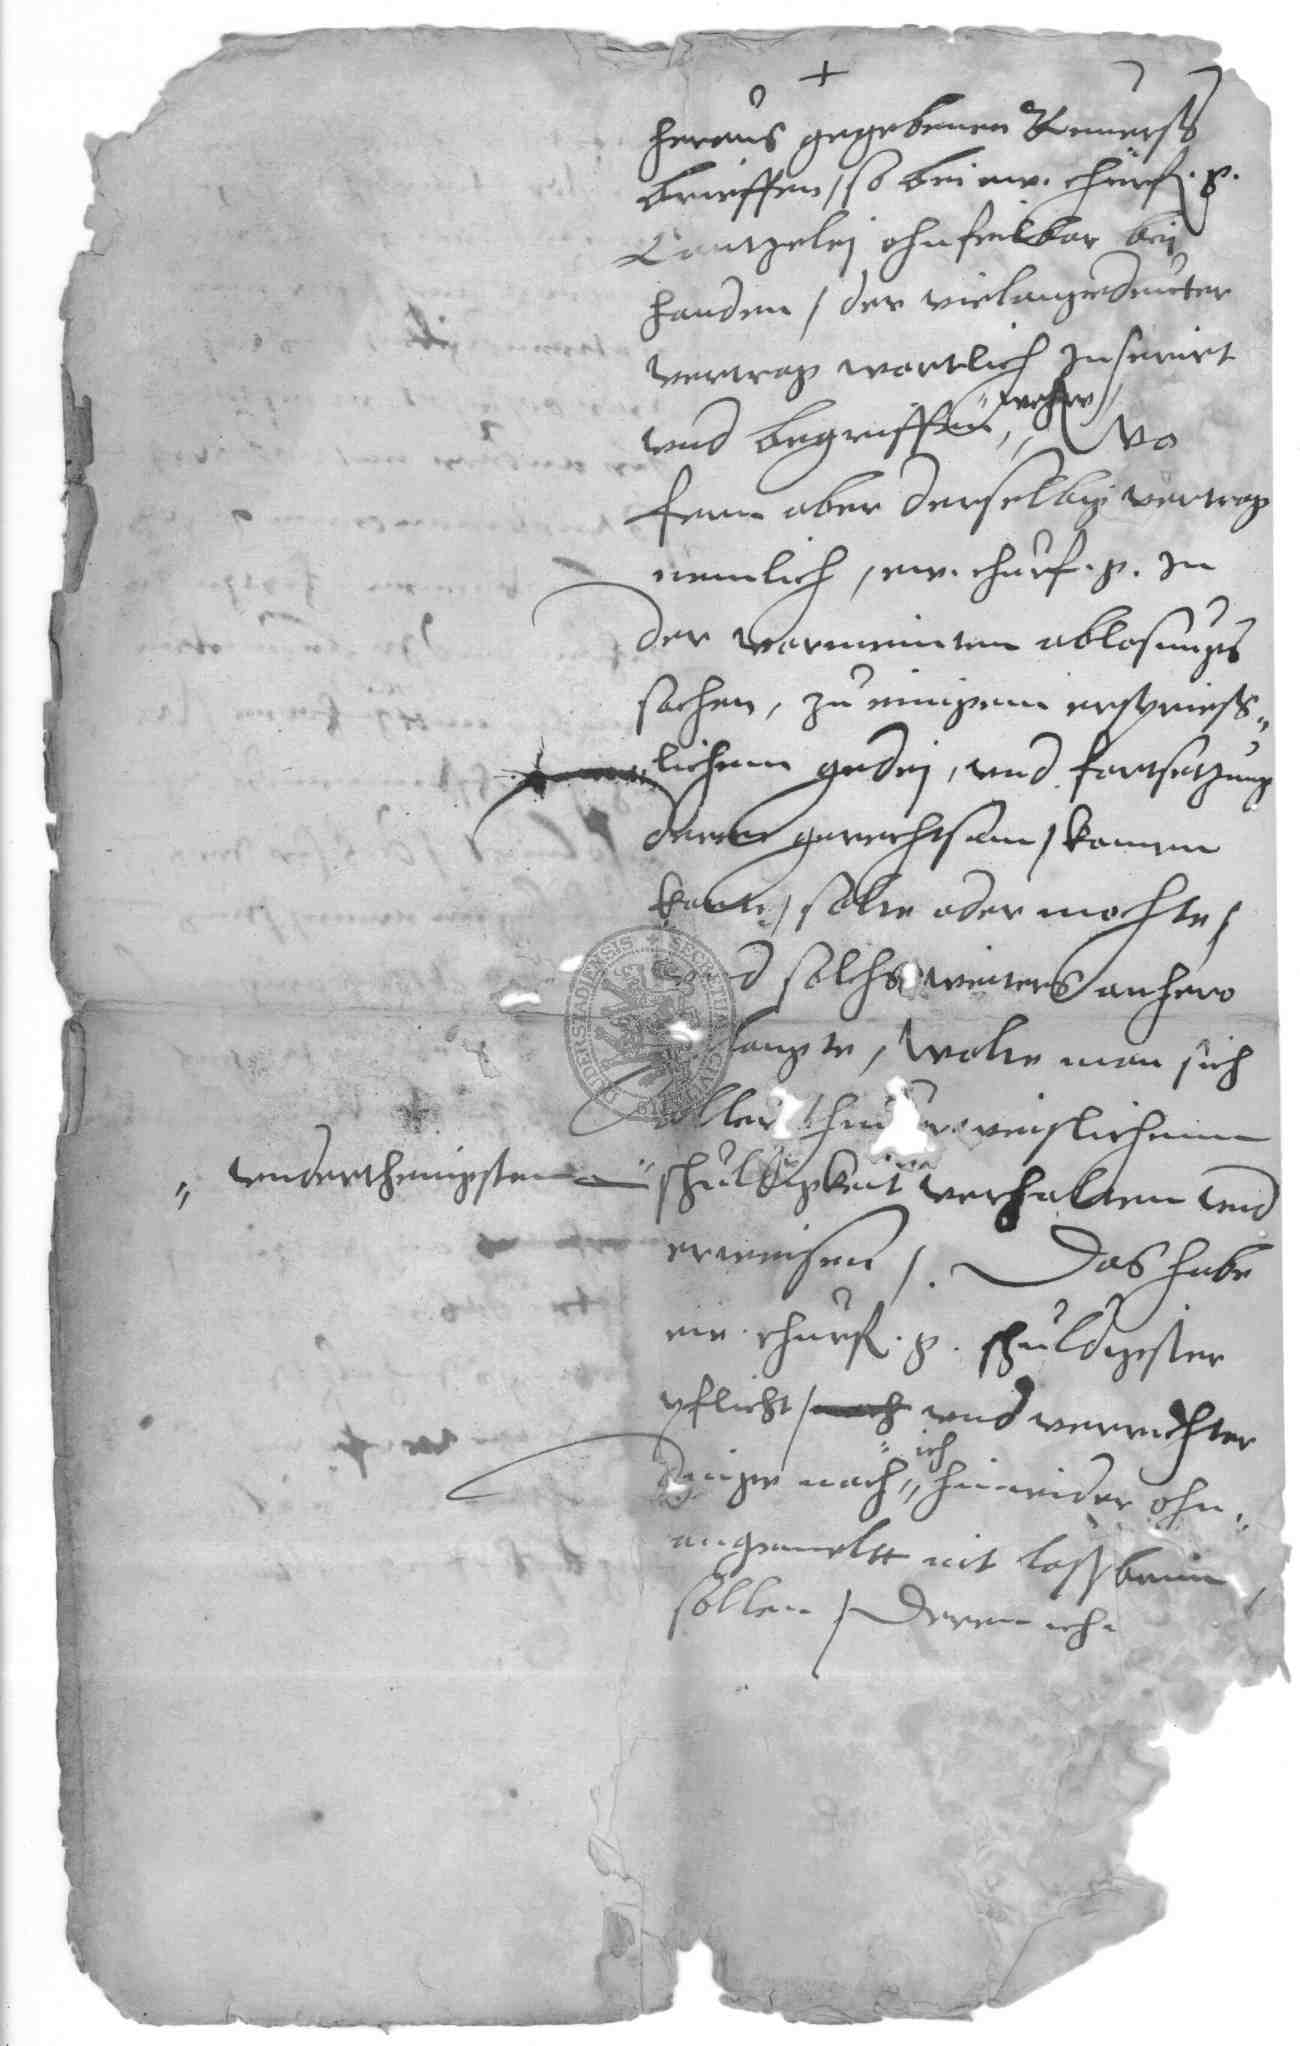 +
heraus gegebenen Reuerß
brieffen, so bei ew. churf. g.
Cantzelej ohnfeilbar bej
handen / der vielangedeuter
vertrag wortlich Inserirt
vnd begriffen,, / Wo
fern aber derselbig vertrag
nemlich, ew. churf. g. In
der vermeinten ablosungs
sachen, zu einigem ersprieß-
lichem gedej, vnd fortsetzung
deren gerechtsam / komen
konte, / solte oder mochte /
vnd solchs weiters anhero
langte, wolte man sich
aller
" vnderthenigsten "
schuldigkeit verhalten vnd
erweisen /. Das habe
ew. churf. g. schuldigster
pflicht / nach vnd verrichter
dinge nach " ich hinwider ohn-
angemelt nit lassen
sollen / Deren ich.
SECRETUM CIVI DUDERSTADIENSIS